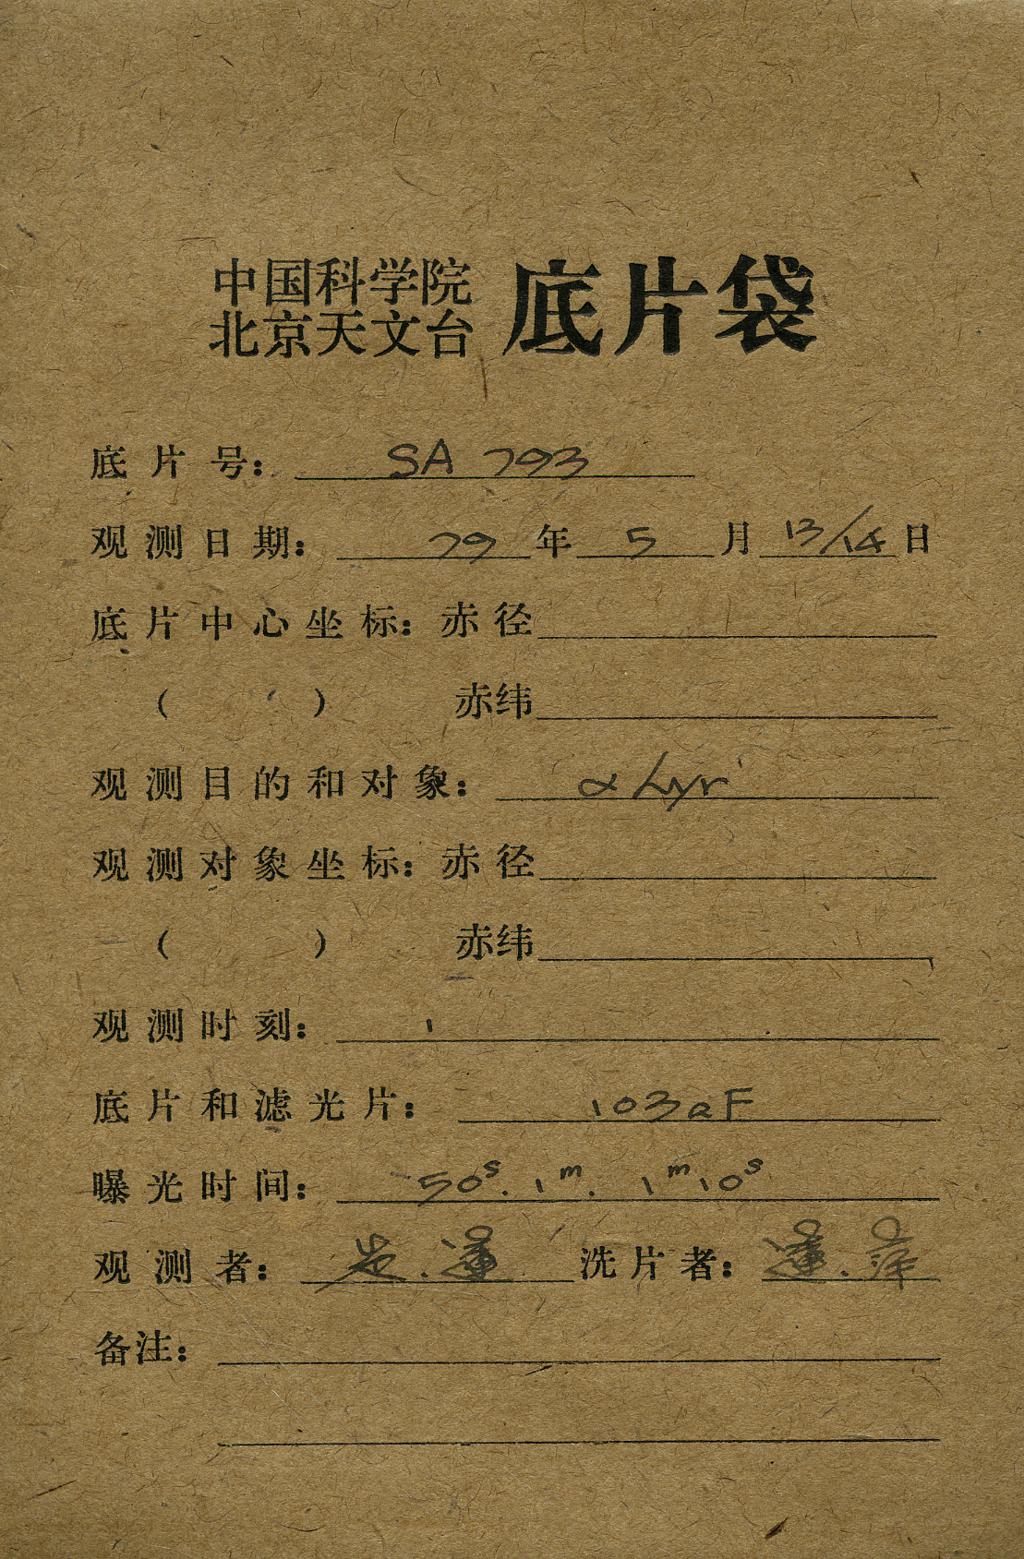 中国科学院
北京天文台
底片袋
底片号: SA 793
观测日期: 79 年 5 月 13/14 日
底片中心坐标: 赤径
( ) 赤纬
观测目的和对象: α Lyr
观测对象坐标: 赤径
( ) 赤纬
观测时刻:
底片和滤光片: 103aF
曝光时间: 50s. 1m. 1m10s
观测者: 洗片者:
备注: